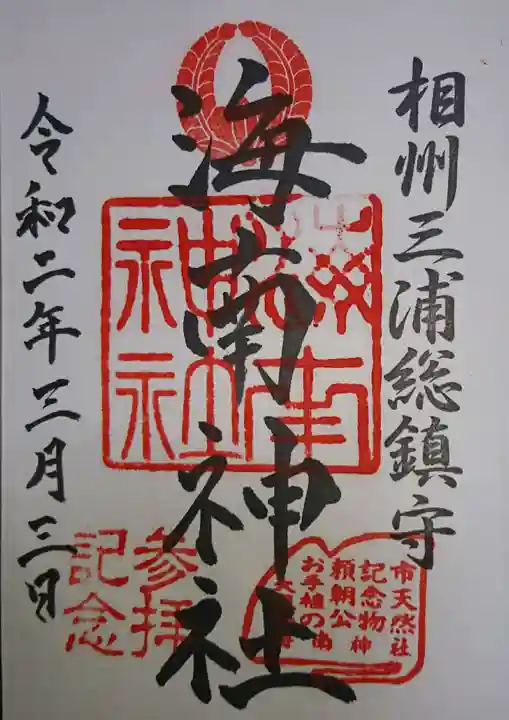 相州三浦総鎮守
海南神社
令和二年三月三日
海南神社
参拝
記念
市天然
記念物
頼朝公
お手植の